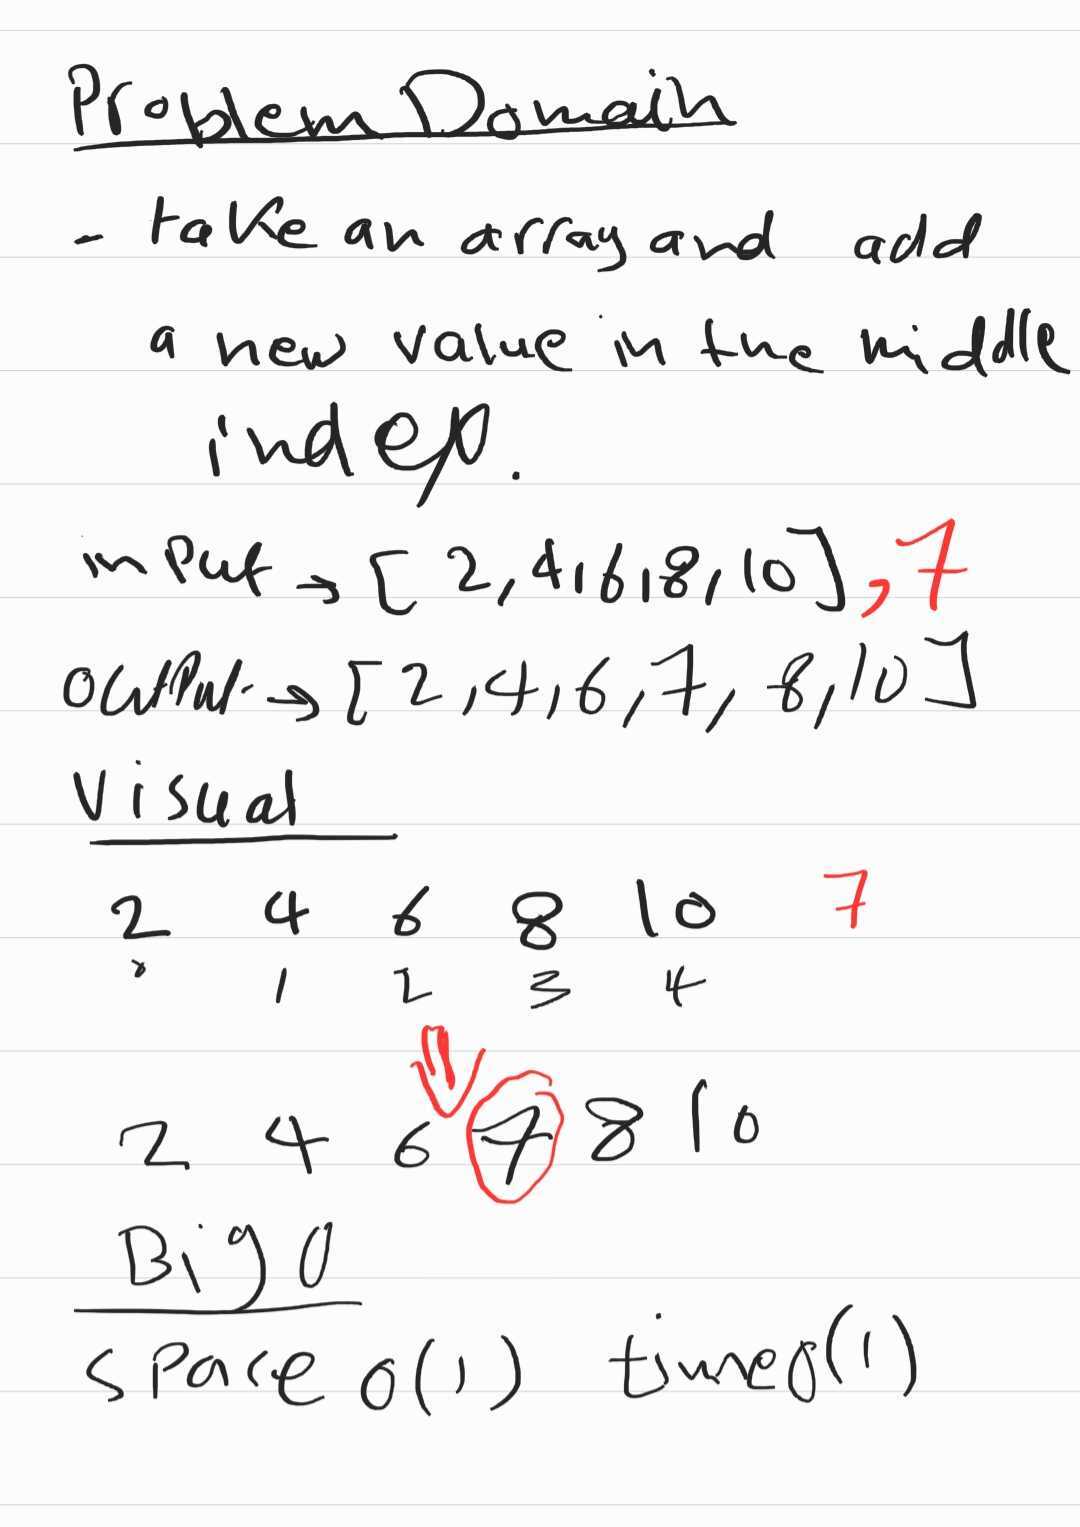 Problem Domain
- take an array and add
a new value in the middle
index.
input → [2,4,6,8,10],7
output → [2,4,6,7,8,10]
Visual
2 4 6 8 10 7
0 1 2 3 4
2 4 6 7 8 10
Big O
space O(1) time O(1)